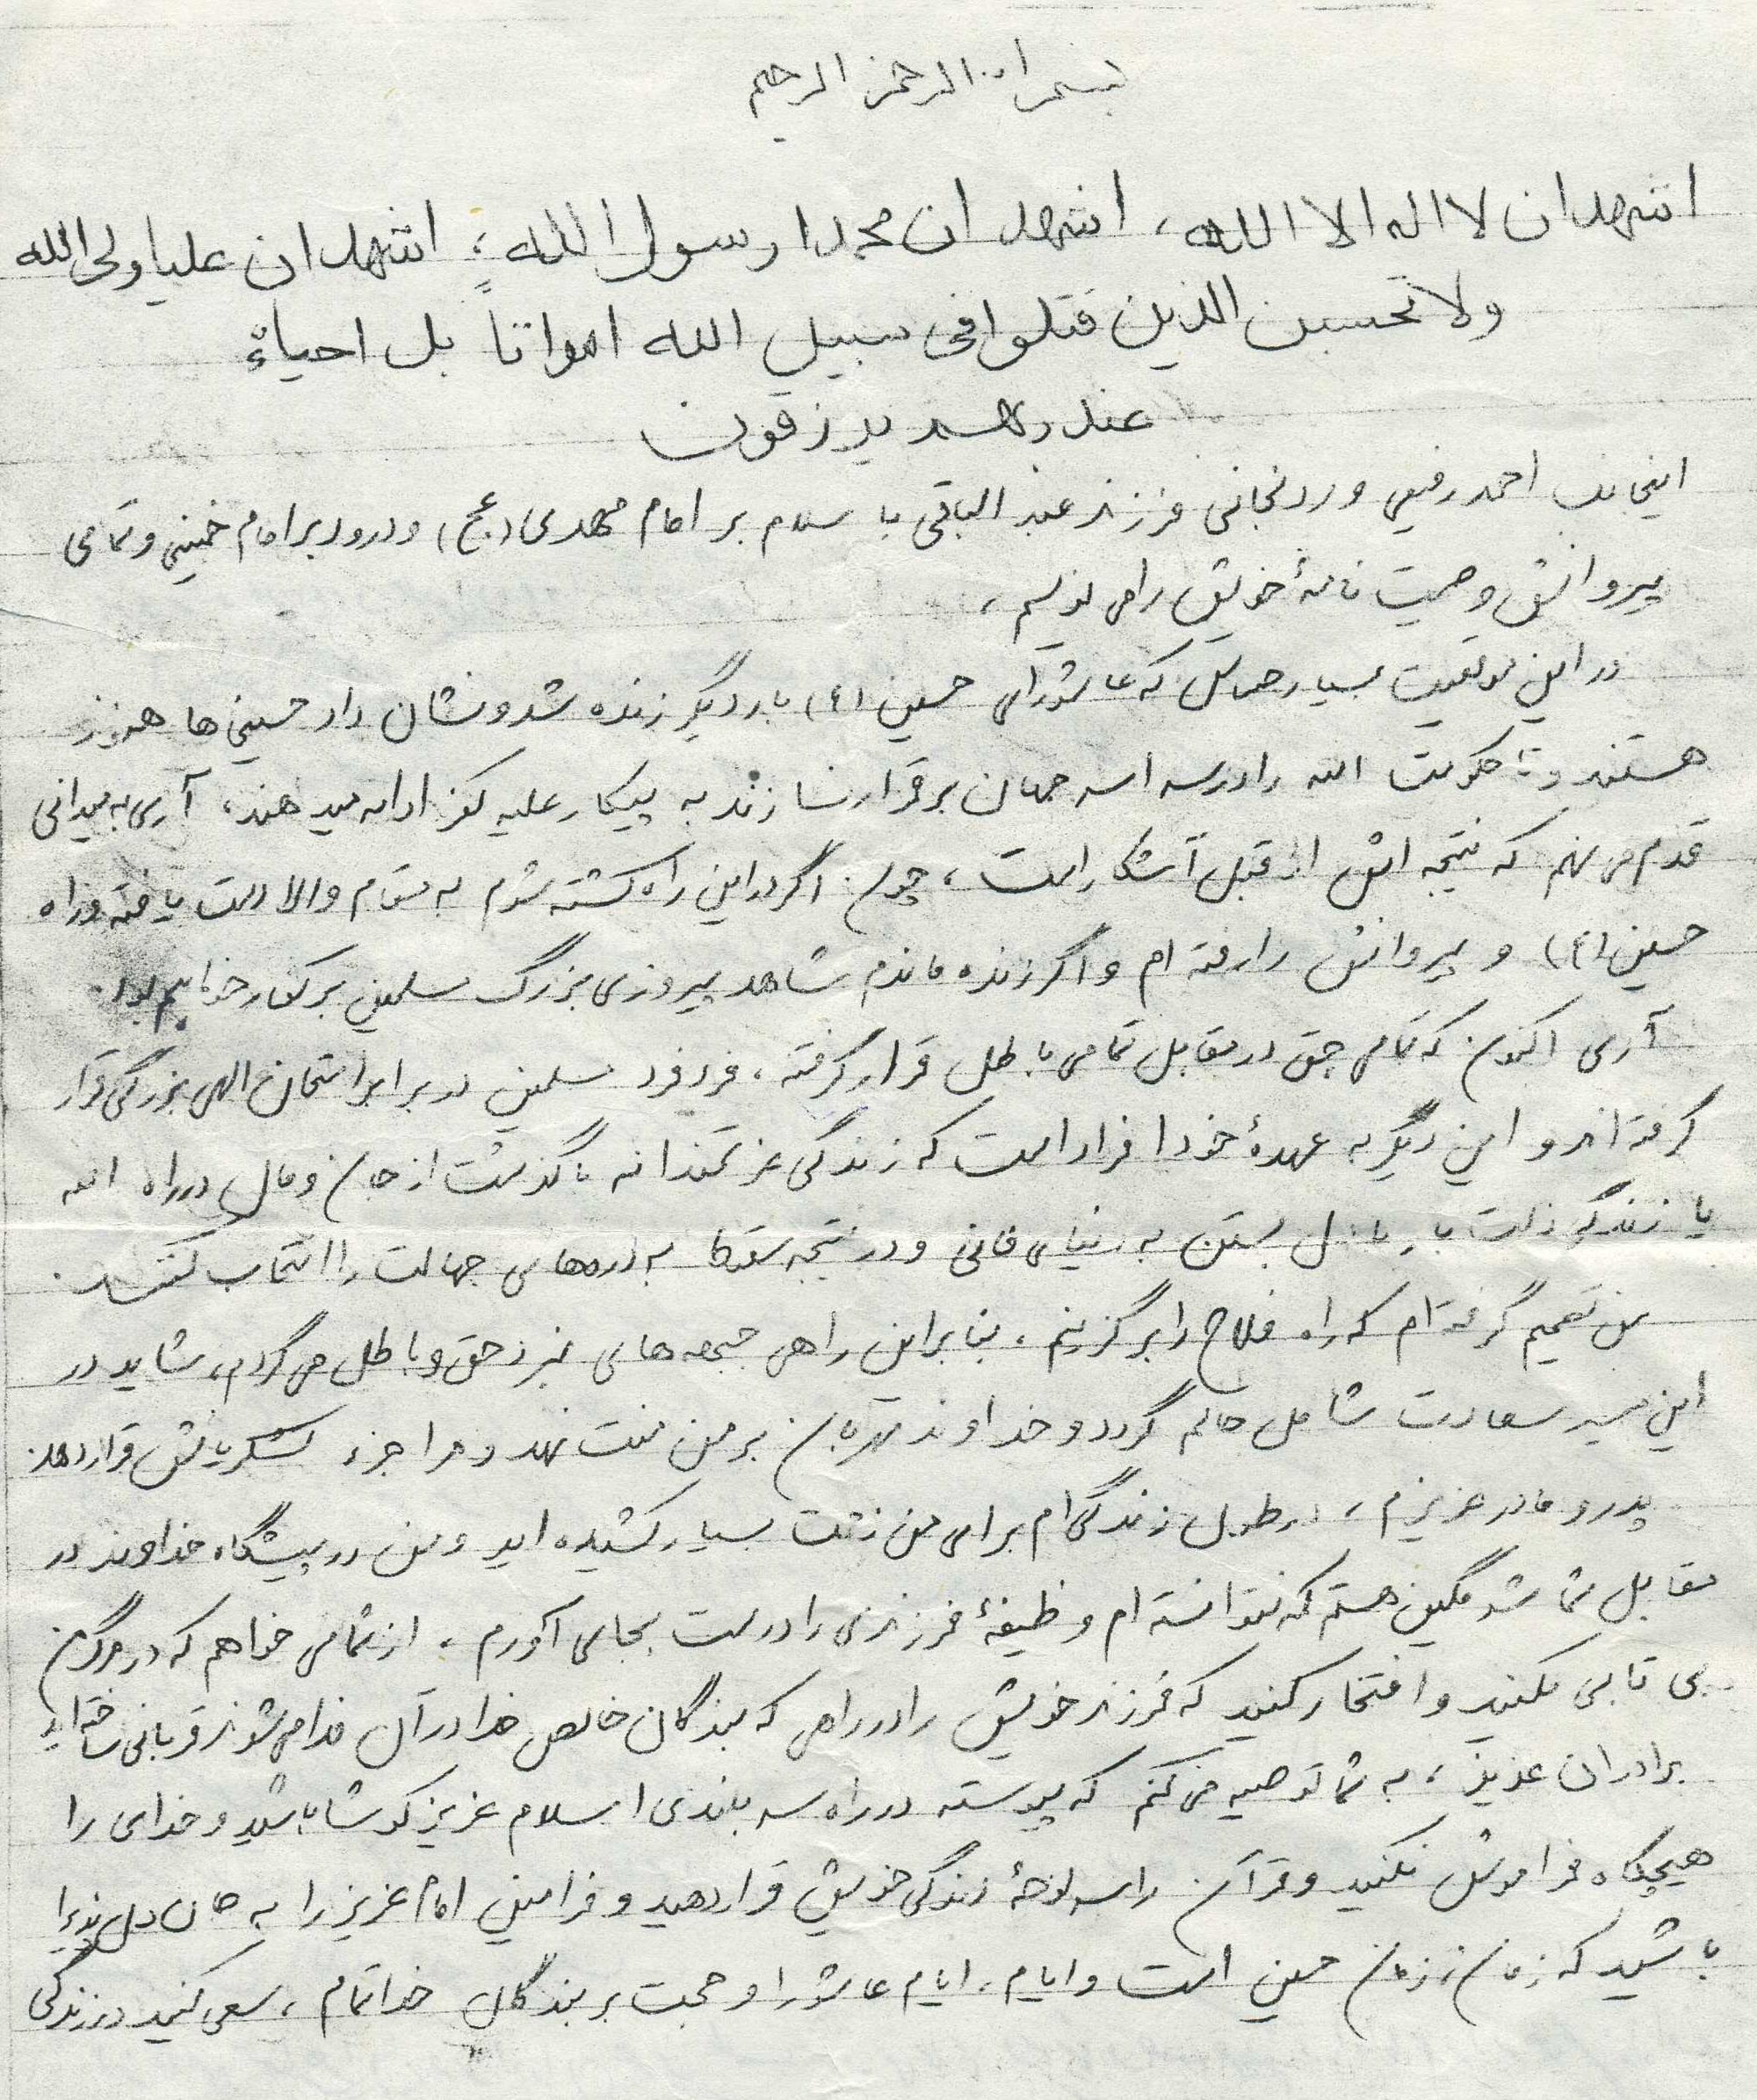 بسم الله الرحمن الرحیم
اشهد ان لا اله الا الله، اشهد ان محمدا رسول الله، اشهد ان علیا ولی الله
ولا تحسبن الذین قتلوا فی سبیل الله امواتاً بل احیاءٌ
عند ربهم یرزقون
اینجانب احمد رفیعی وردنجانی فرزند عبدالباقی با سلام بر امام مهدی (عج) و درود بر امام خمینی و تمامی
پیروانش وصیت نامهٔ خویش را می نویسم،
در این موقعیت بسیار حساس که عاشورای حسین (ع) بار دیگر زنده شد و نشان داد حسینی ها هنوز
هستند و تا حکومت الله را در سراسر جهان برقرار نسازند به پیکار علیه کفر ادامه میدهند، آری به میدانی
قدم می نهم که نتیجه اش از قبل آشکار است، چون اگر در این راه کشته شوم به مقام والا دست یافته و راه
حسین (ع) و پیروانش را رفته ام و اگر زنده ماندم شاهد پیروزی بزرگ مسلمین بر کفار خواهم بود.
آری اکنون که تمامی حق در مقابل تمامی باطل قرار گرفته، فرد فرد مسلمین در برابر امتحان الهی بزرگی قرار
گرفته اند و این دیگر به عهدهٔ خود افراد است که زندگی عزتمندانه با گذشت از جان و مال در راه الله
یا زندگی ذلت بار با دل بستن به دنیای فانی و در نتیجه سقوط به دره های جهالت را انتخاب کنند.
من تصمیم گرفته ام که راه فلاح را برگزینم، بنابراین راهی جبهه های نبرد حق و باطل می گردم، شاید در
این مسیر سعادت شامل حالم گردد و خداوند مهربان بر من منت نهد و مرا جزء لشکریانش قرار دهد.
پدر و مادر عزیزم، در طول زندگی ام برای من زحمت بسیار کشیده اید و من در پیشگاه خداوند در
مقابل شما شرمگین هستم که نتوانسته ام وظیفهٔ فرزندی را درست بجای آورم، از شما می خواهم که در مرگ من
بی تابی نکنید و افتخار کنید که فرزند خویش را در راهی که بندگان خالص خدا در آن فدا می شوند قربانی ساخته اید
برادران عزیز، به شما توصیه می کنم که پیوسته در راه سربلندی اسلام عزیز کوشا باشید و خدای را
هیچگاه فراموش نکنید و قرآن را سرلوحهٔ زندگی خویش قرار دهید و فرامین امام عزیز را به جان و دل پذیرا
باشید که زمان، زمان حسین است و ایام، ایام عاشورا و حجت بر بندگان خدا تمام، سعی کنید در زندگی